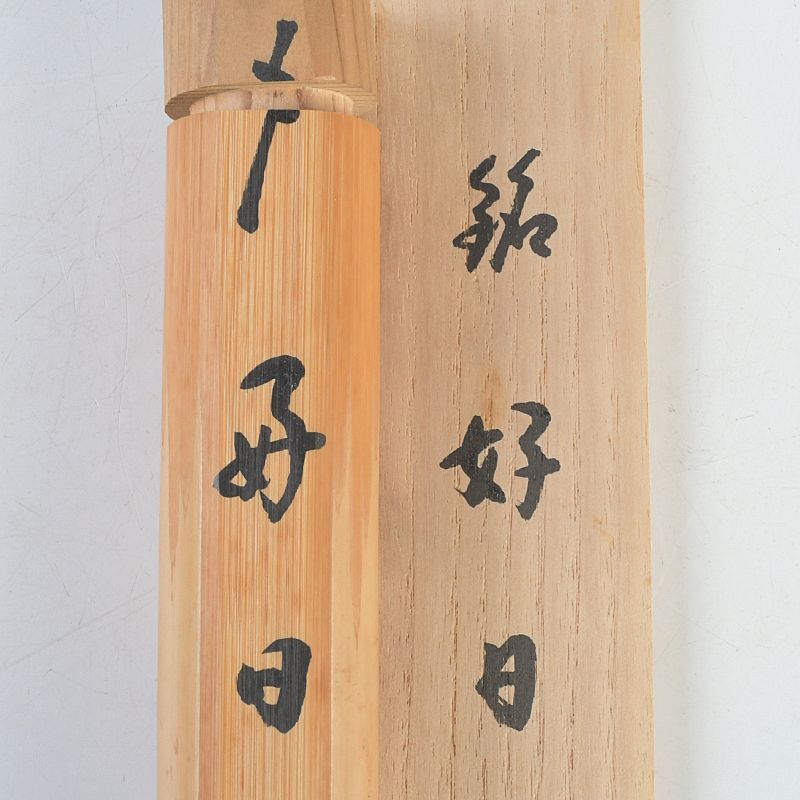 銘 好日
好日